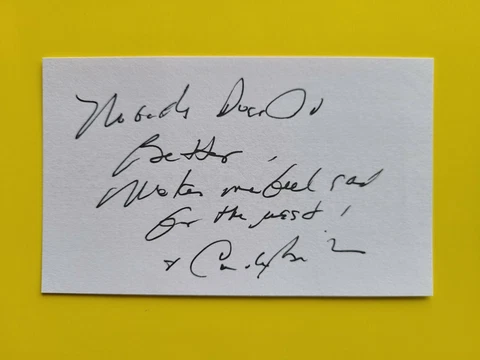 Nobody Does It
Better,
Makes me feel sad
for the rest!